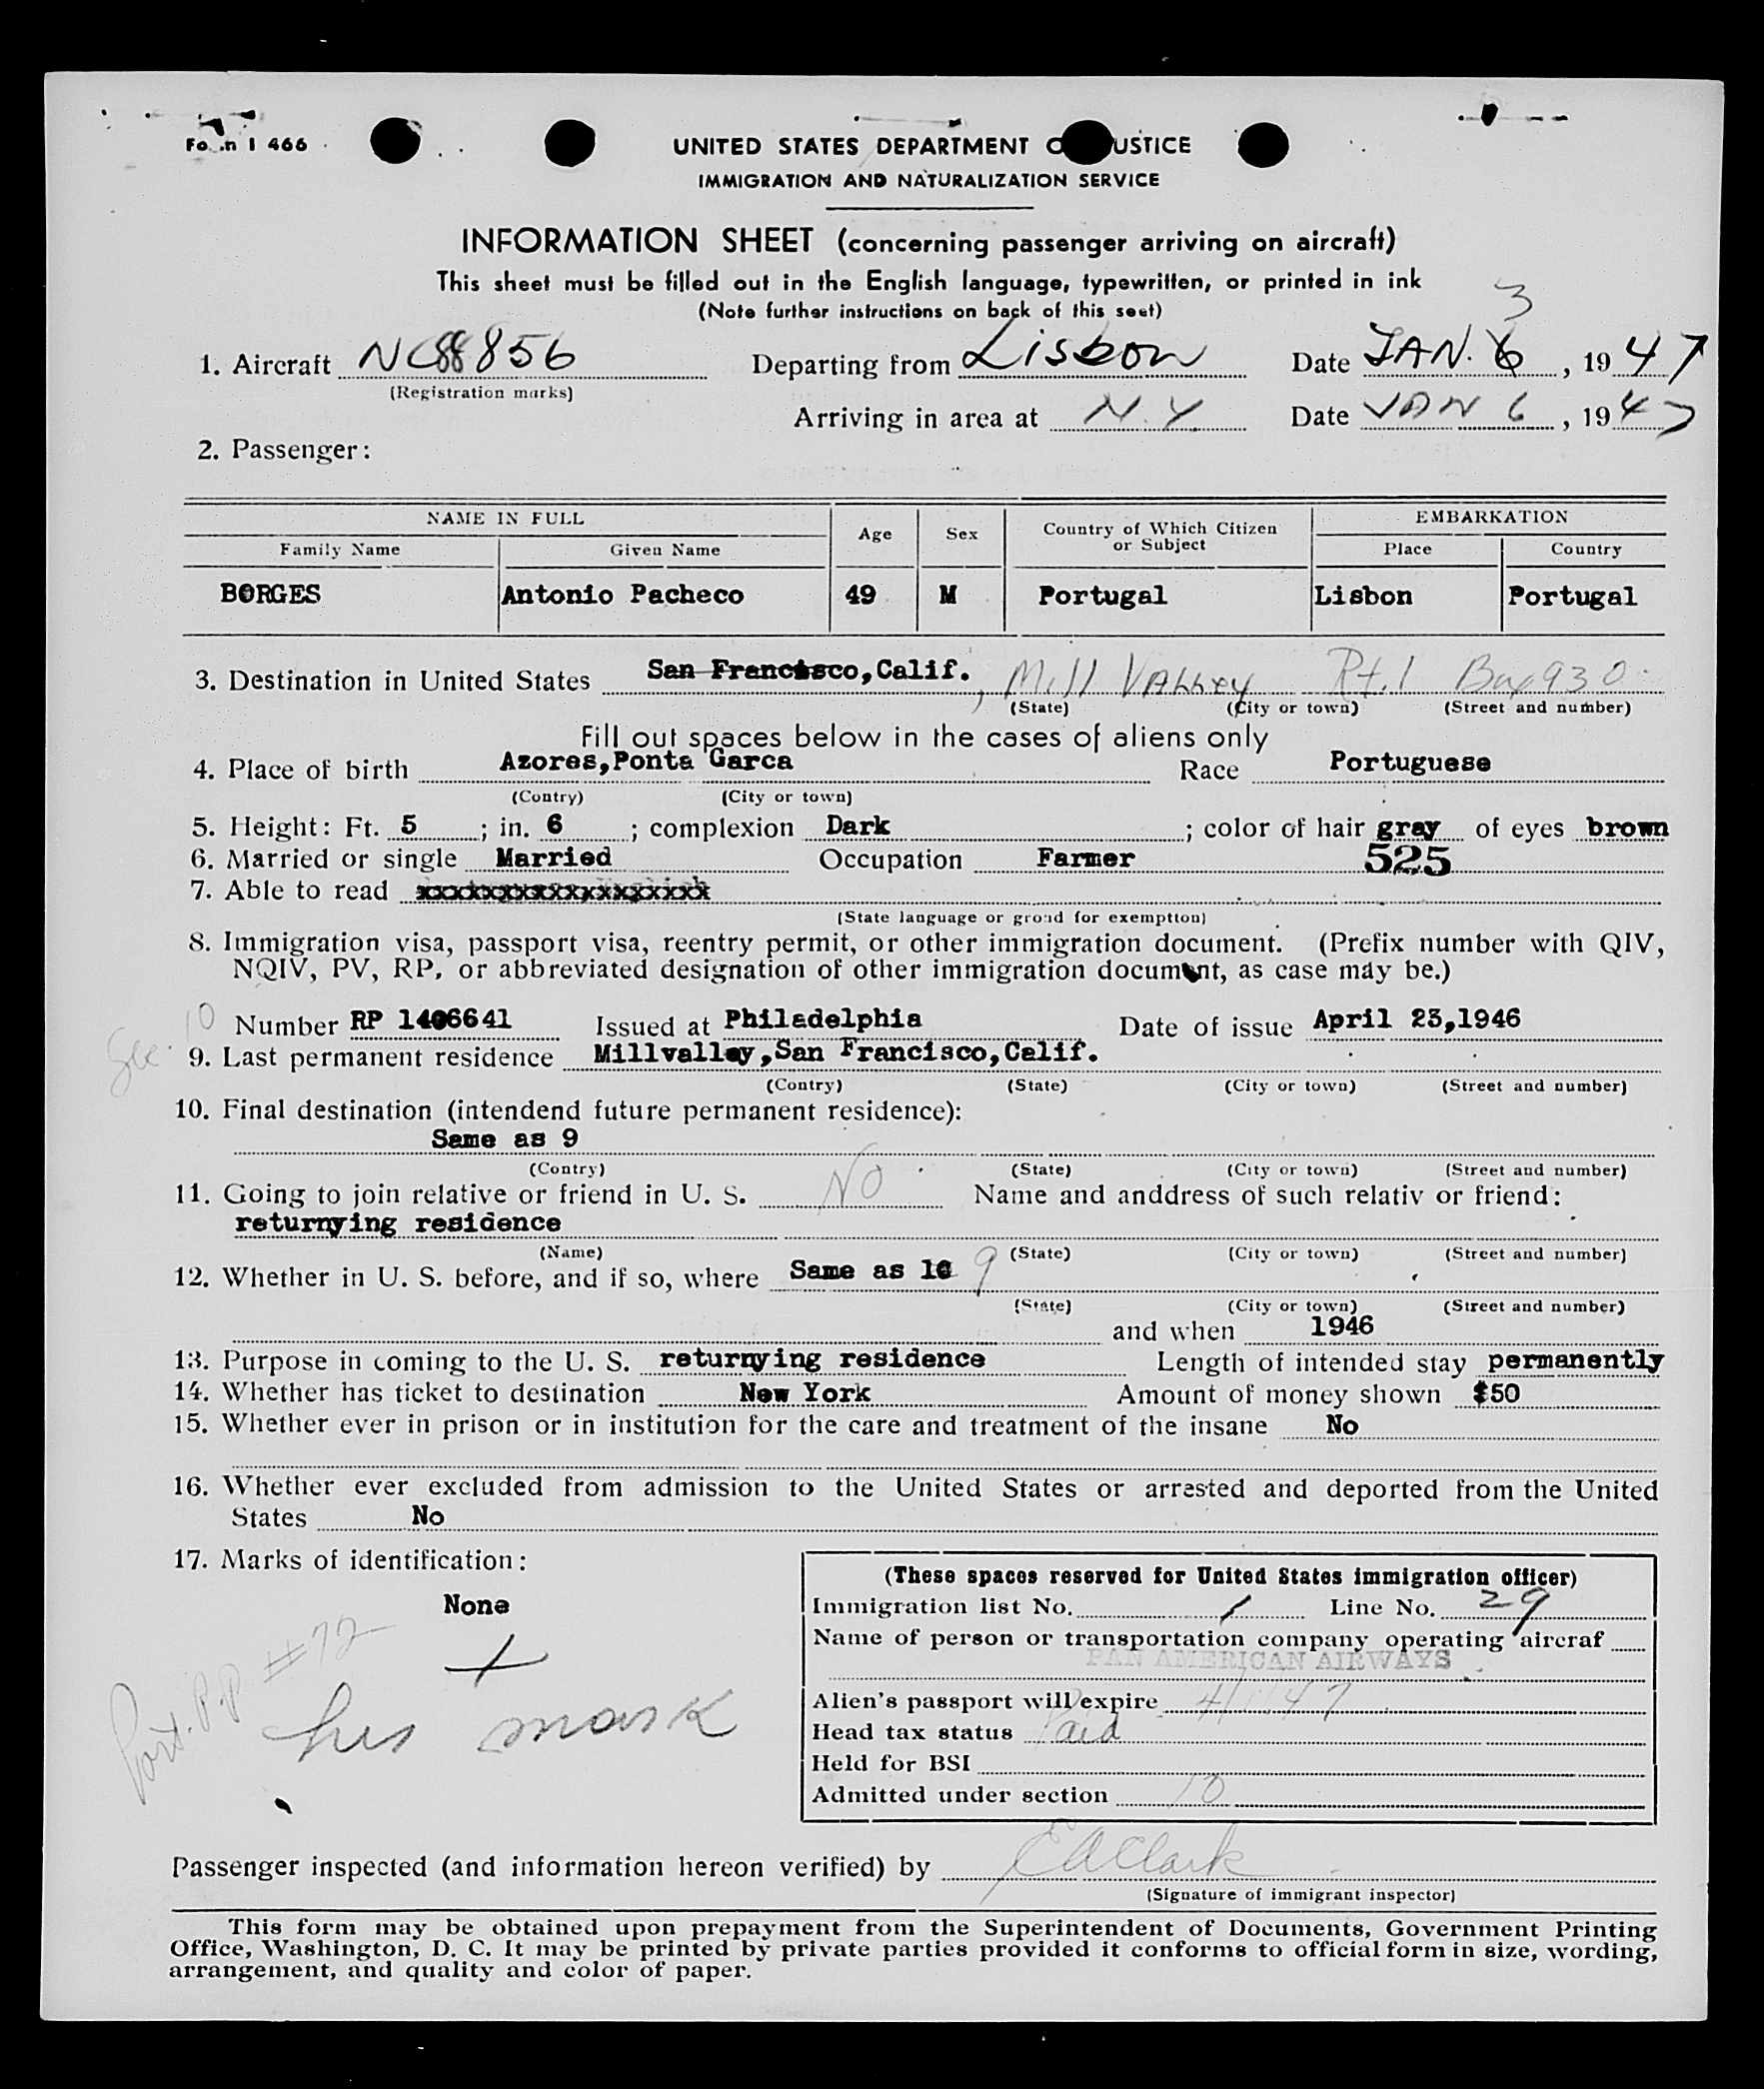 Form I 466
UNITED STATES DEPARTMENT OF JUSTICE
IMMIGRATION AND NATURALIZATION SERVICE
INFORMATION SHEET (concerning passenger arriving on aircraft)
This sheet must be filled out in the English language, typewritten, or printed in ink
(Note further instructions on back of this seet)
3
1. Aircraft NC88856 Departing from Lisbon Date JAN. 6, 1947
(Registration marks)
Arriving in area at N.Y. Date JAN 6, 1947
2. Passenger:
NAME IN FULL Age Sex Country of Which Citizen or Subject EMBARKATION
Family Name Given Name Place Country
BORGES Antonio Pacheco 49 M Portugal Lisbon Portugal
3. Destination in United States San Francisco, Calif., Mill Valley Rt.1 Box 930
(State) (City or town) (Street and number)
Fill out spaces below in the cases of aliens only
4. Place of birth Azores, Ponta Garca Race Portuguese
(Contry) (City or town)
5. Height: Ft. 5; in. 6; complexion Dark; color of hair gray of eyes brown
6. Married or single Married Occupation Farmer 525
7. Able to read
(State language or groud for exemption)
8. Immigration visa, passport visa, reentry permit, or other immigration document. (Prefix number with QIV,
NQIV, PV, RP, or abbreviated designation of other immigration document, as case may be.)
See 10
Number RP 1406641 Issued at Philadelphia Date of issue April 23,1946
9. Last permanent residence Millvalley, San Francisco, Calif.
(Contry) (State) (City or town) (Street and number)
10. Final destination (intendend future permanent residence):
Same as 9
(Contry) (State) (City or town) (Street and number)
11. Going to join relative or friend in U. S. No Name and anddress of such relativ or friend:
returnying residence
(Name) (State) (City or town) (Street and number)
12. Whether in U. S. before, and if so, where Same as 10 9
(State) (City or town) (Street and number)
and when 1946
13. Purpose in coming to the U. S. returnying residence Length of intended stay permanently
14. Whether has ticket to destination New York Amount of money shown $50
15. Whether ever in prison or in institution for the care and treatment of the insane No
16. Whether ever excluded from admission to the United States or arrested and deported from the United
States No
17. Marks of identification:
None
+
his mark
Port. P.P #72
(These spaces reserved for United States immigration officer)
Immigration list No. 1 Line No. 29
Name of person or transportation company operating aircraf
PAN AMERICAN AIRWAYS
Alien's passport will expire 4/1/47
Head tax status Paid
Held for BSI
Admitted under section 10
Passenger inspected (and information hereon verified) by E A Clark
(Signature of immigrant inspector)
This form may be obtained upon prepayment from the Superintendent of Documents, Government Printing
Office, Washington, D. C. It may be printed by private parties provided it conforms to official form in size, wording,
arrangement, and quality and color of paper.